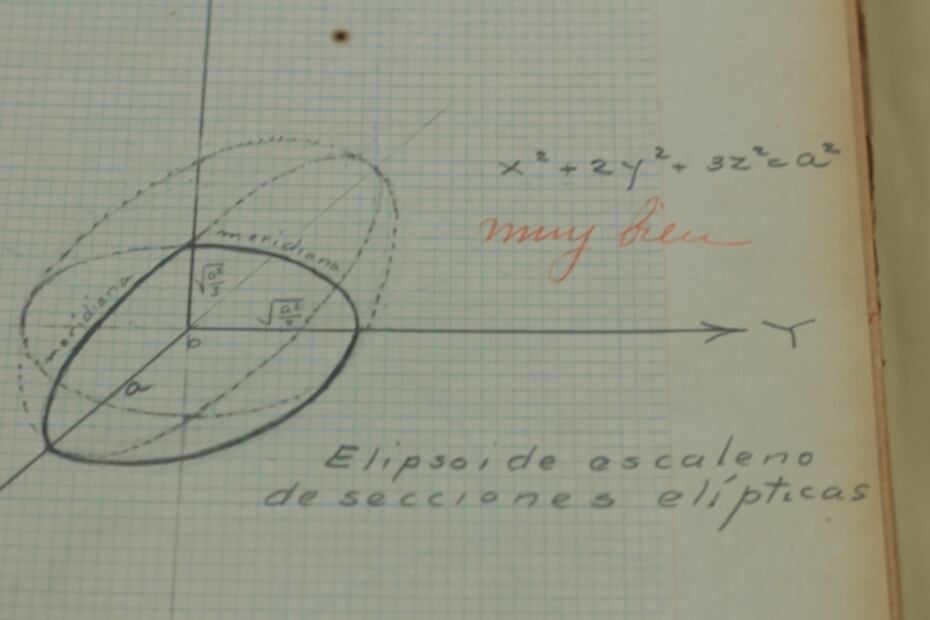 x² + 2y² + 3z² = a²
muy bien
meridiana
meridiana
√a²/3
√a²/2
Y
o
a
Elipsoide escaleno
de secciones elípticas